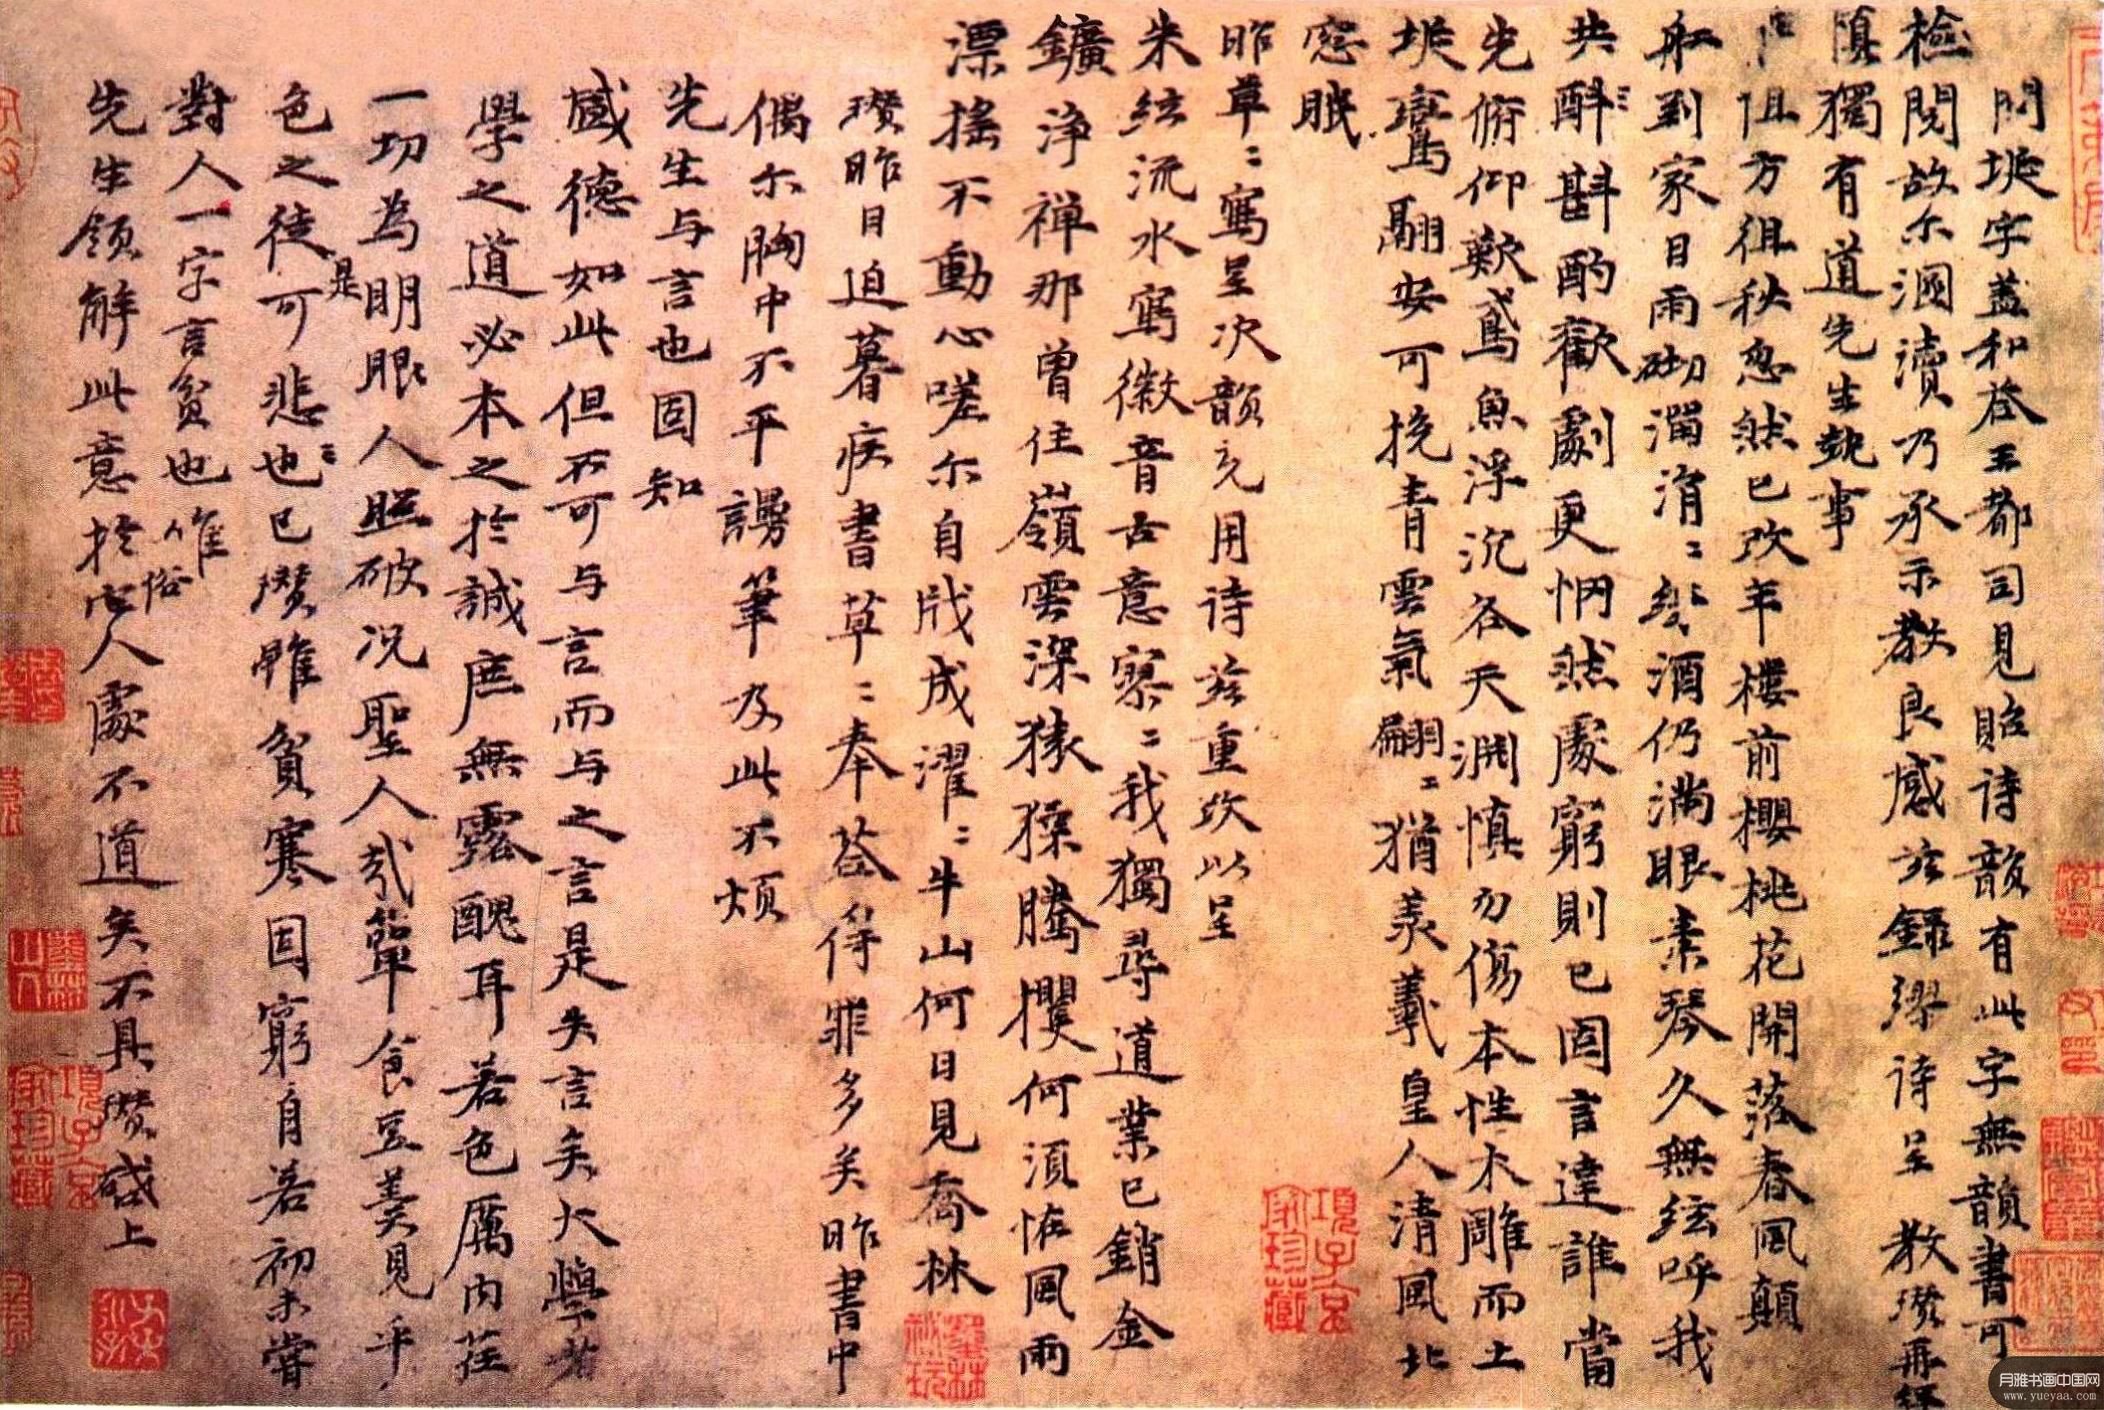 問垙字蓋和荅王都司見貽诗韻有此字無韻書可
檢閱故尓溷瀆乃承示教良感玆錄繆诗呈 教瓚再
慎獨有道先生執事
阻方徂秋忽然已改年樓前櫻桃花開落春風顛
舡到家日雨砌潤涓〻 酒仍滿眼素琴久無絃呼我
共酙斟酌歡劇更惘然處窮則已固言達誰當
先俯仰歎鳶魚浮沉各天渊慎勿傷本性木雕而土
垙鴍翮安可挽青雲氣翩〻猶羨羲皇人清風北
窓眠
昨草〻寫呈次韻 用诗玆重改以呈
朱絃流水寫徽音古意寥〻我獨尋道業已銷金
鑛浄禪那曽住嶺雲深猿猱騰攫何須恠風雨
漂搖不動心嗟尓自戕成濯〻牛山何日見喬林
瓚昨日迫暮疾書草〻奉荅得罪多矣昨書中
偶尓胸中不平謾筆及此不煩
先生与言也固知
感德如此但不可与言而与之言是失言矣大學者
學之道必本之於誠庶無露醜耳若色厲内荏
一切為明眼人照破况聖人哉簞食豆羹見乎
是
色之徒可悲也〻已瓚雖貧寒固窮自若初未甞
對人一字言貧也唯
俗
先生領解此意於它人處不道矣不具瓚啟上
項子京
家珍藏
墨林
祕玩
月雅书画中国网
www.yueyaa.com